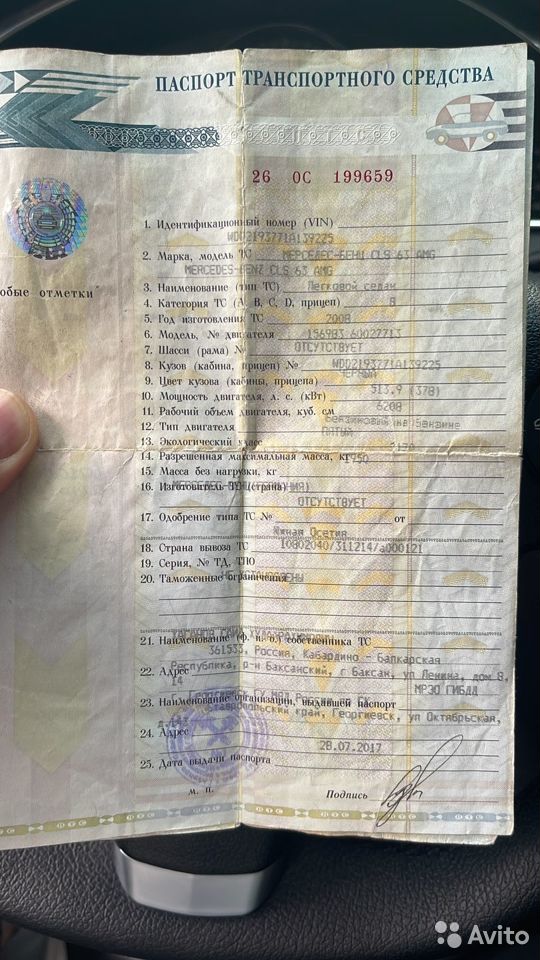 ПАСПОРТ ТРАНСПОРТНОГО СРЕДСТВА
26 ОС 199659
обые отметки
1. Идентификационный номер (VIN)
WDD2193771A139225
2. Марка, модель ТС МЕРСЕДЕС-БЕНЦ CLS 63 AMG
MERCEDES-BENZ CLS 63 AMG
3. Наименование (тип ТС) Легковой седан
4. Категория ТС (А, В, С, D, прицеп) В
5. Год изготовления ТС 2008
6. Модель, № двигателя 156983 60027713
7. Шасси (рама) № ОТСУТСТВУЕТ
8. Кузов (кабина, прицеп) № WDD2193771A139225
9. Цвет кузова (кабины, прицепа) ЧЕРНЫЙ
10. Мощность двигателя, л. с. (кВт) 513.9 (378)
11. Рабочий объем двигателя, куб. см 6208
12. Тип двигателя Бензиновый на бензине
13. Экологический класс ПЯТЫЙ
14. Разрешенная максимальная масса, кг
15. Масса без нагрузки, кг
16. Изготовитель ТС (страна)
ОТСУТСТВУЕТ
17. Одобрение типа ТС № от
Южная Осетия
18. Страна вывоза ТС 10802040/311214/а000121
19. Серия, № ТД, ТПО
20. Таможенные ограничения
21. Наименование (ф. и. о.) собственника ТС
361533, Россия, Кабардино - Балкарская
Республика, р-н Баксанский, г Баксан, ул Ленина, дом 8,
22. Адрес 14
МРЭО ГИБДД
23. Наименование организации, выдавшей паспорт
Ставропольский край, Георгиевск, ул Октябрьская,
24. Адрес
28.07.2017
25. Дата выдачи паспорта
М. П. Подпись
ПТС
Avito